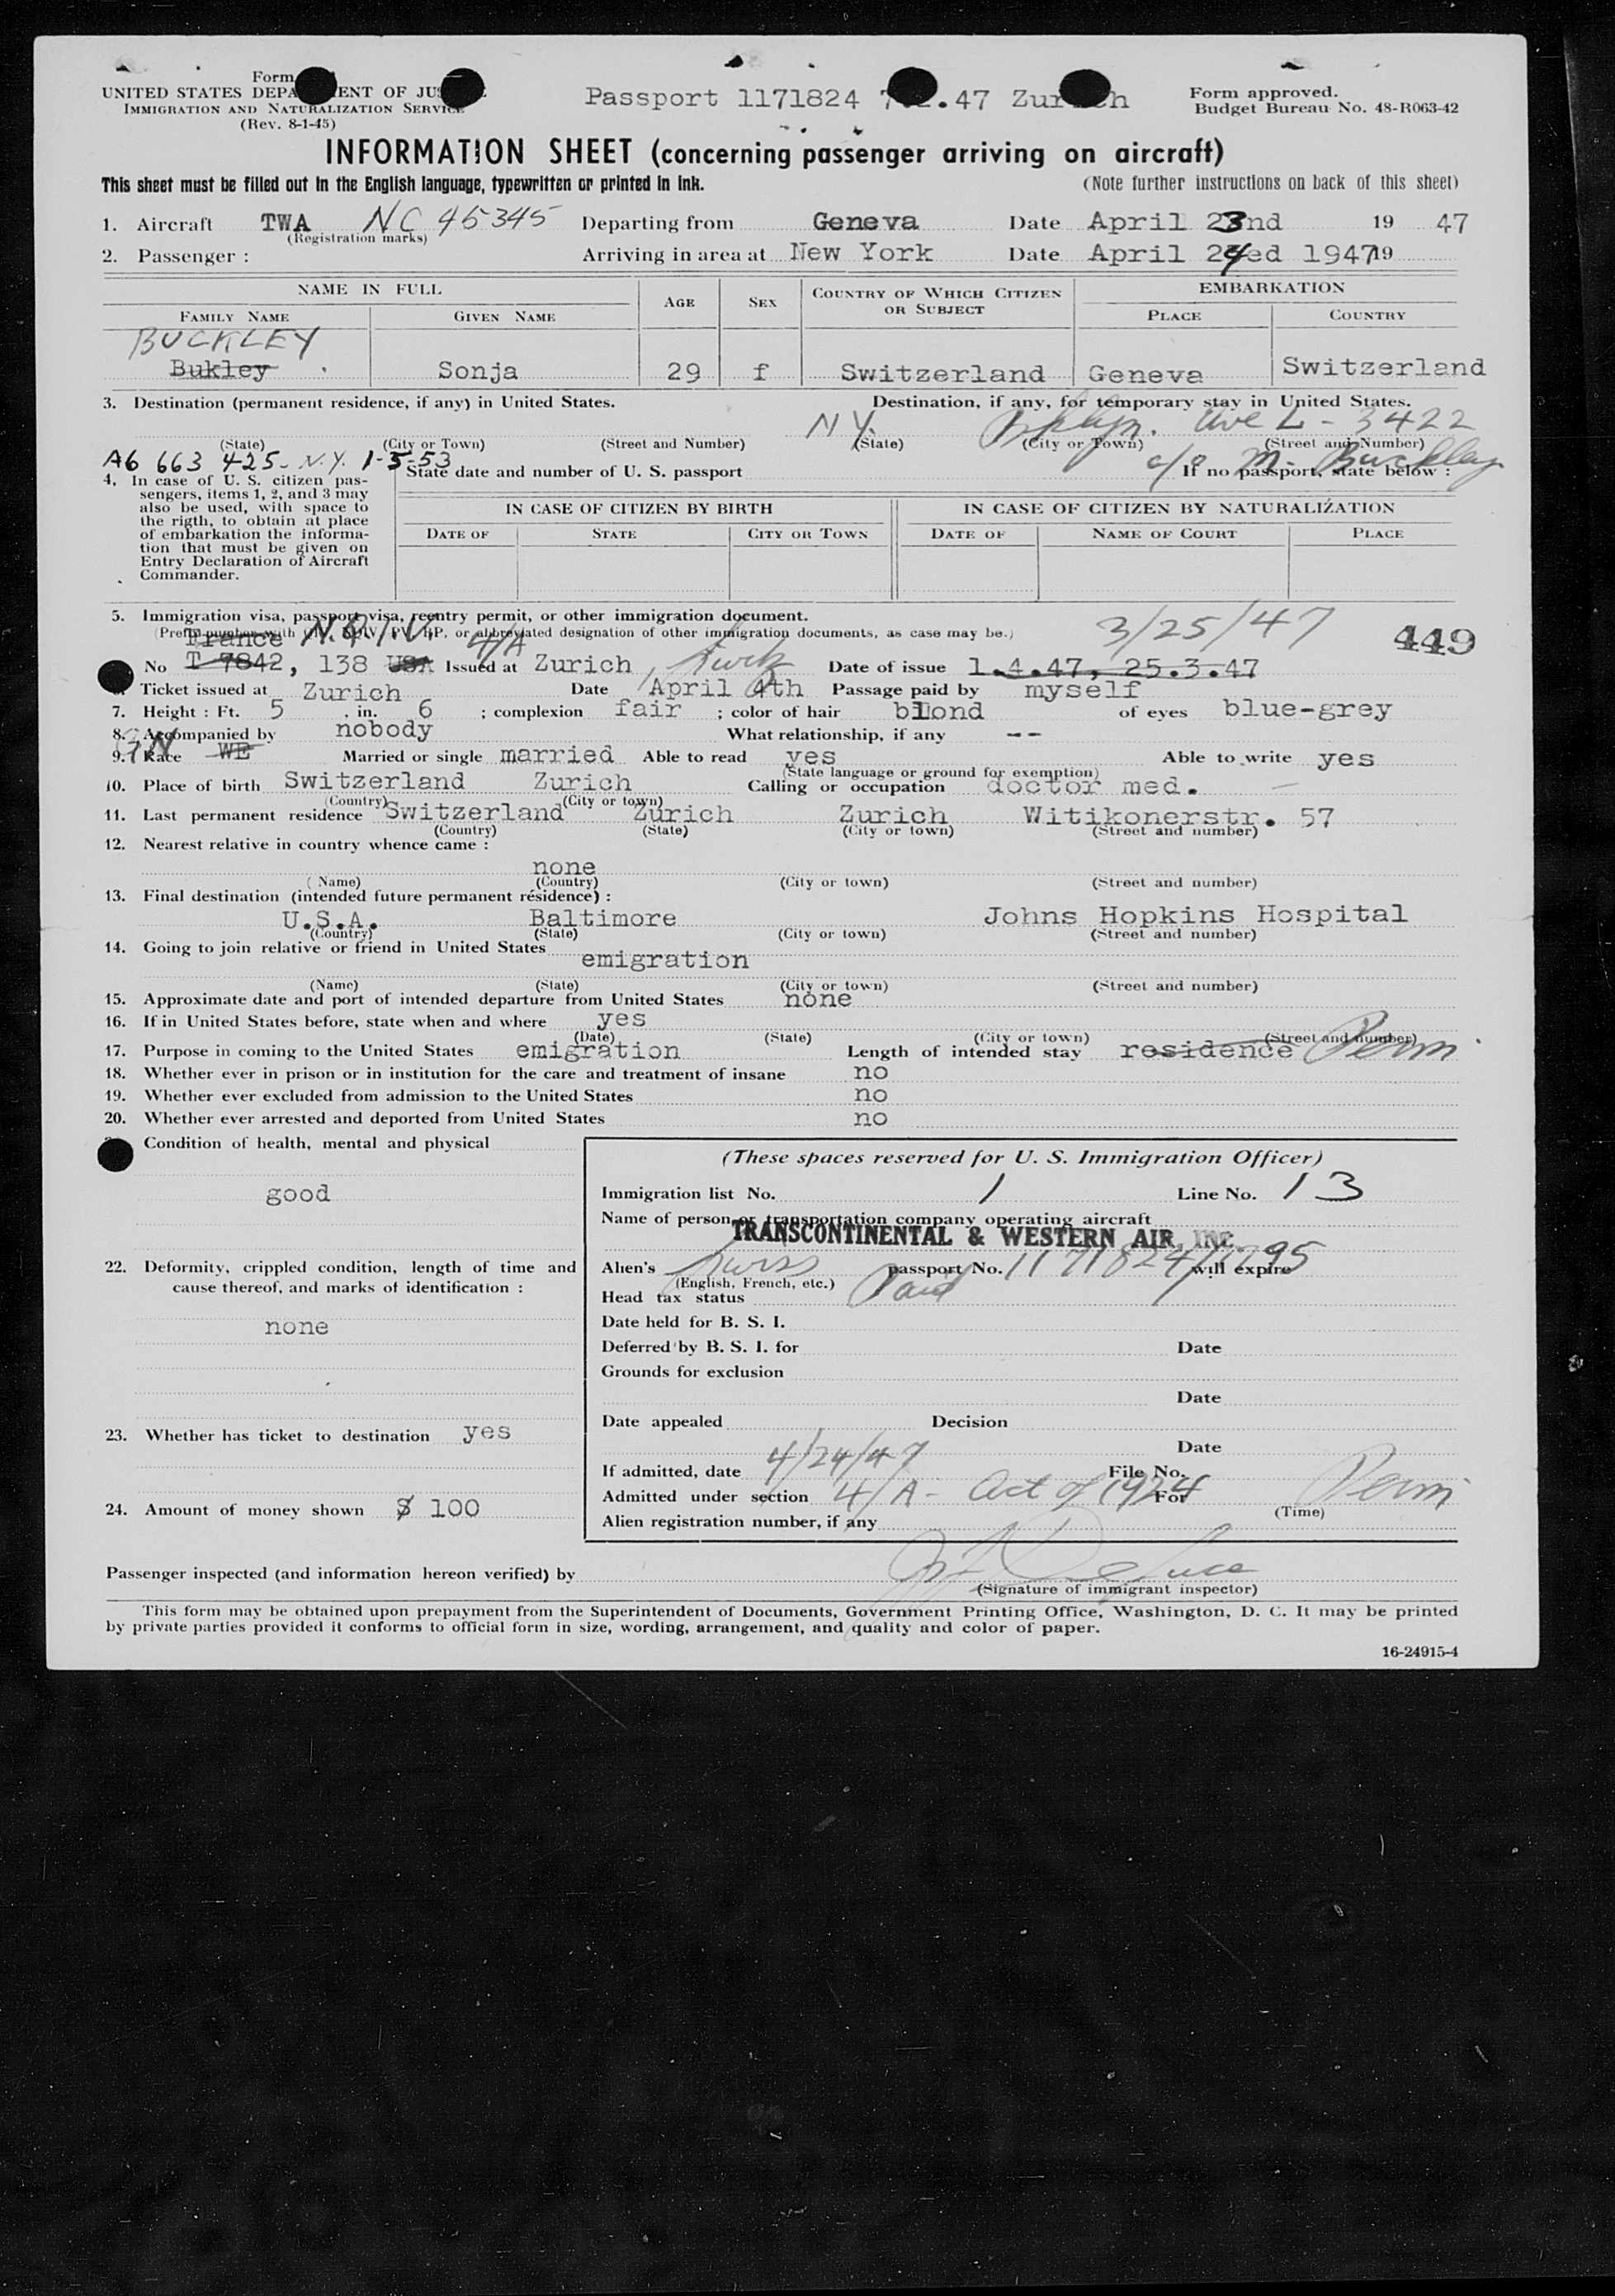 Form
UNITED STATES DEPA ENT OF JU
IMMIGRATION AND NATURALIZATION SERVICE
(Rev. 8-1-45)
Passport 1171824 .47 Zur h
Form approved.
Budget Bureau No. 48-R063-42
INFORMATION SHEET (concerning passenger arriving on aircraft)
This sheet must be filled out in the English language, typewritten or printed in ink.
(Note further instructions on back of this sheet)
1. Aircraft TWA NC 45345 Departing from Geneva Date April 23nd 19 47
(Registration marks)
2. Passenger : Arriving in area at New York Date April 24ed 1947 19
NAME IN FULL AGE SEX COUNTRY OF WHICH CITIZEN OR SUBJECT EMBARKATION
FAMILY NAME GIVEN NAME PLACE COUNTRY
BUCKLEY
Bukley Sonja 29 f Switzerland Geneva Switzerland
3. Destination (permanent residence, if any) in United States. Destination, if any, for temporary stay in United States.
N.Y. Bklyn. Ave L - 3422
(State) (City or Town) (Street and Number) (State) (City or Town) (Street and Number)
A6 663 425 - N.Y. 1-5-53 c/o M. Buckley
State date and number of U. S. passport If no passport, state below :
4. In case of U. S. citizen pas-
sengers, items 1, 2, and 3 may
also be used, with space to
the rigth, to obtain at place
of embarkation the informa-
tion that must be given on
Entry Declaration of Aircraft
Commander.
IN CASE OF CITIZEN BY BIRTH IN CASE OF CITIZEN BY NATURALIZATION
DATE OF STATE CITY OR TOWN DATE OF NAME OF COURT PLACE
5. Immigration visa, passport visa, reentry permit, or other immigration document.
(Prefix number with QIV, NQIV, PV, RP, or abbreviated designation of other immigration documents, as case may be.)
France N.Q.I.V. 4/A 3/25/47 449
No T 7842, 138 USA Issued at Zurich, Switz Date of issue 1.4.47, 25.3.47
Ticket issued at Zurich Date April 4th Passage paid by myself
7. Height : Ft. 5 in. 6 ; complexion fair ; color of hair blond of eyes blue-grey
8. Accompanied by nobody What relationship, if any --
9. Race WE Married or single married Able to read yes Able to write yes
(State language or ground for exemption)
10. Place of birth Switzerland Zurich Calling or occupation doctor med.
(Country) (City or town)
11. Last permanent residence Switzerland Zurich Zurich Witikonerstr. 57
(Country) (State) (City or town) (Street and number)
12. Nearest relative in country whence came :
none
(Name) (Country) (City or town) (Street and number)
13. Final destination (intended future permanent résidence) :
U.S.A. Baltimore Johns Hopkins Hospital
(Country) (State) (City or town) (Street and number)
14. Going to join relative or friend in United States emigration
(Name) (State) (City or town) (Street and number)
15. Approximate date and port of intended departure from United States none
16. If in United States before, state when and where yes
(Date) (State) (City or town) (Street and number)
17. Purpose in coming to the United States emigration Length of intended stay residence Perm.
18. Whether ever in prison or in institution for the care and treatment of insane no
19. Whether ever excluded from admission to the United States no
20. Whether ever arrested and deported from United States no
Condition of health, mental and physical
good
22. Deformity, crippled condition, length of time and
cause thereof, and marks of identification :
none
23. Whether has ticket to destination yes
24. Amount of money shown $ 100
(These spaces reserved for U. S. Immigration Officer)
Immigration list No. 1 Line No. 13
Name of person or transportation company operating aircraft
TRANSCONTINENTAL & WESTERN AIR, INC.
Alien's Swiss passport No. 1171824/7795 will expire
(English, French, etc.)
Head tax status Paid
Date held for B. S. I.
Deferred by B. S. I. for Date
Grounds for exclusion
Date
Date appealed Decision
Date
If admitted, date 4/24/47 File No.
Admitted under section 4/A - Act of 1924 For Perm
(Time)
Alien registration number, if any
Passenger inspected (and information hereon verified) by
(Signature of immigrant inspector)
This form may be obtained upon prepayment from the Superintendent of Documents, Government Printing Office, Washington, D. C. It may be printed
by private parties provided it conforms to official form in size, wording, arrangement, and quality and color of paper.
16-24915-4